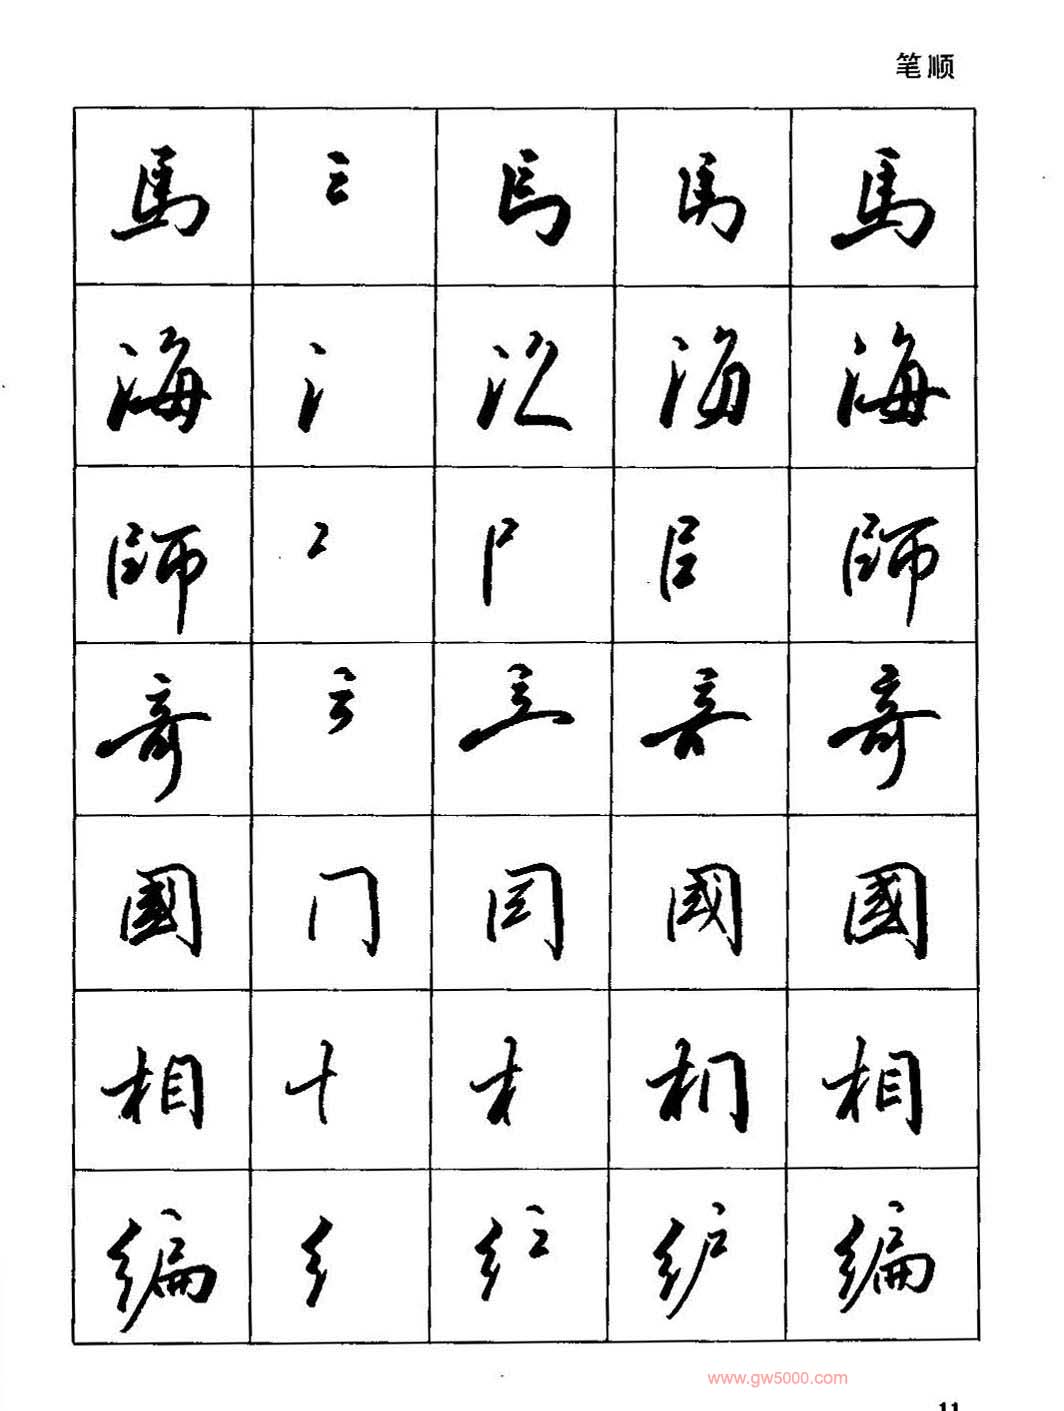 笔顺
馬 馬
海 氵 海
師 師
哥 哥
國 冂 國
相 十 木 相
编 纟 编
www.gw5000.com
11